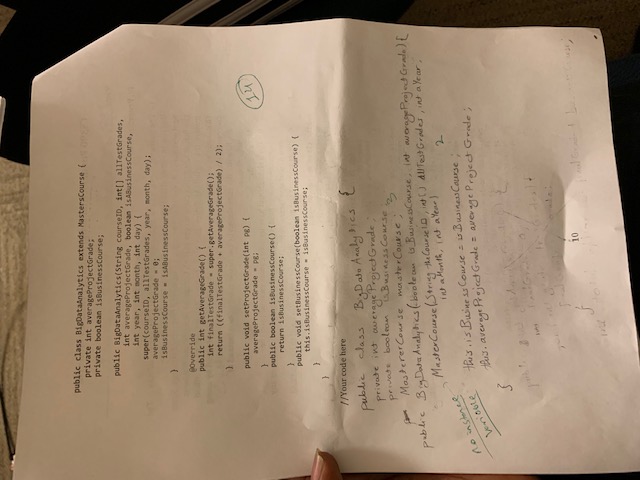 public class BigDataAnalytics extends MastersCourse {
private int averageProjectGrade;
private boolean isBusinessCourse;
public BigDataAnalytics(String courseID, int[] allTestGrades,
int averageProjectGrade, boolean isABusinessCourse,
int year, int month, int day) {
super(courseID, allTestGrades, year, month, day);
averageProjectGrade = 0;
isBusinessCourse = isABusinessCourse;
}
@Override
public int getAverageGrade() {
int finalTestGrade = super.getAverageGrade();
return ((finalTestGrade + averageProjectGrade) / 2);
}
public void setProjectGrade(int pg) {
averageProjectGrade = pg;
}
public boolean isBusinessCourse() {
return isBusinessCourse;
}
public void setBusinessCourse(boolean isBusinessCourse) {
this.isBusinessCourse = isBusinessCourse;
}
}
14
//Your code here
public class BigDataAnalytics {
private int averageProjectGrade;
private boolean isBusinessCourse
MastererCourse masterCourse; 3
public BigDataAnalytics(boolean isBusinessCourse, int averageProjectGrade) {
MasterCourse(String theCourseID, int[] AllTestGrades, int aYear,
int aMonth, int aYear)
2
no instance
variable
this.isBusinessCourse = isBusinessCourse;
this.averageProjectGrade = averageProjectGrade;
}
10